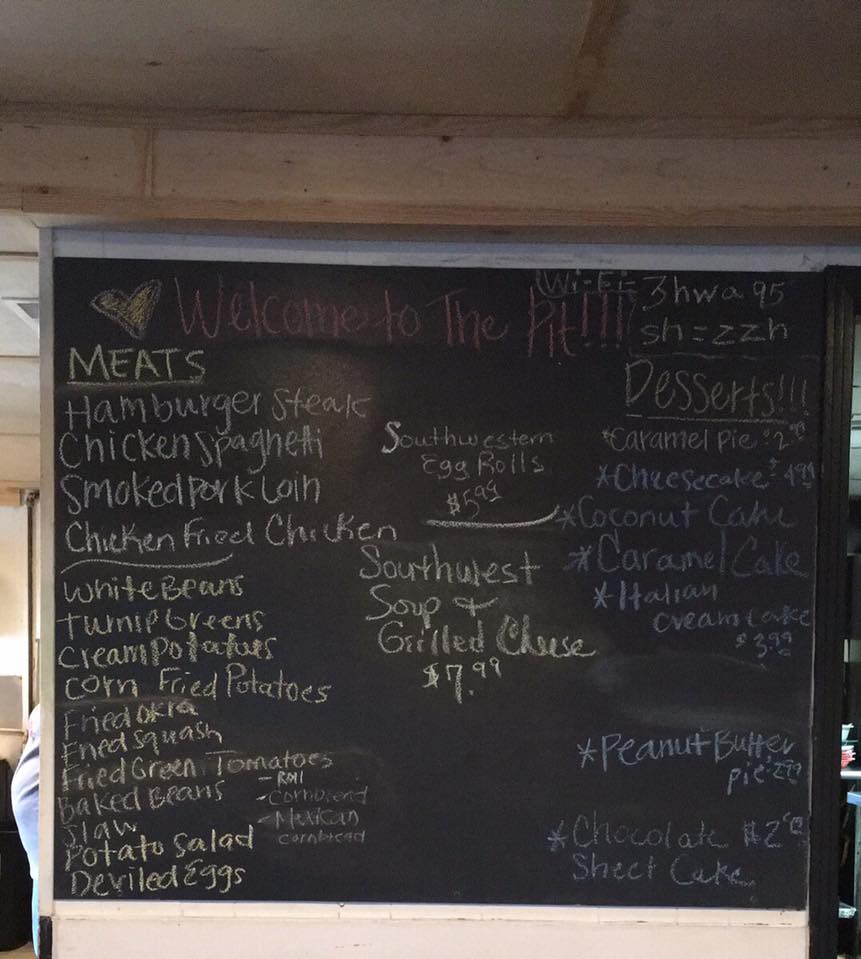 Welcome to The Pit!!!
Wi-Fi-
3hwa95
sh=zzh
MEATS
Hamburger Steak
Chicken Spaghetti
Smoked Pork Loin
Chicken Fried Chicken
White Beans
Turnip Greens
Cream Potatoes
Corn Fried Potatoes
Fried Okra
Fried Squash
Fried Green Tomatoes
Baked Beans
Slaw
Potato Salad
Deviled Eggs
- Roll
- Cornbread
- Mexican
cornbread
Southwestern
Egg Rolls
$5.99
Southwest
Soup +
Grilled Cheese
$7.99
Desserts!!!
*Caramel Pie $2.99
*Cheesecake $4.99
*Coconut Cake
*Caramel Cake
*Italian
cream cake
$3.99
*Peanut Butter
pie 2.99
*Chocolate $2
Sheet Cake